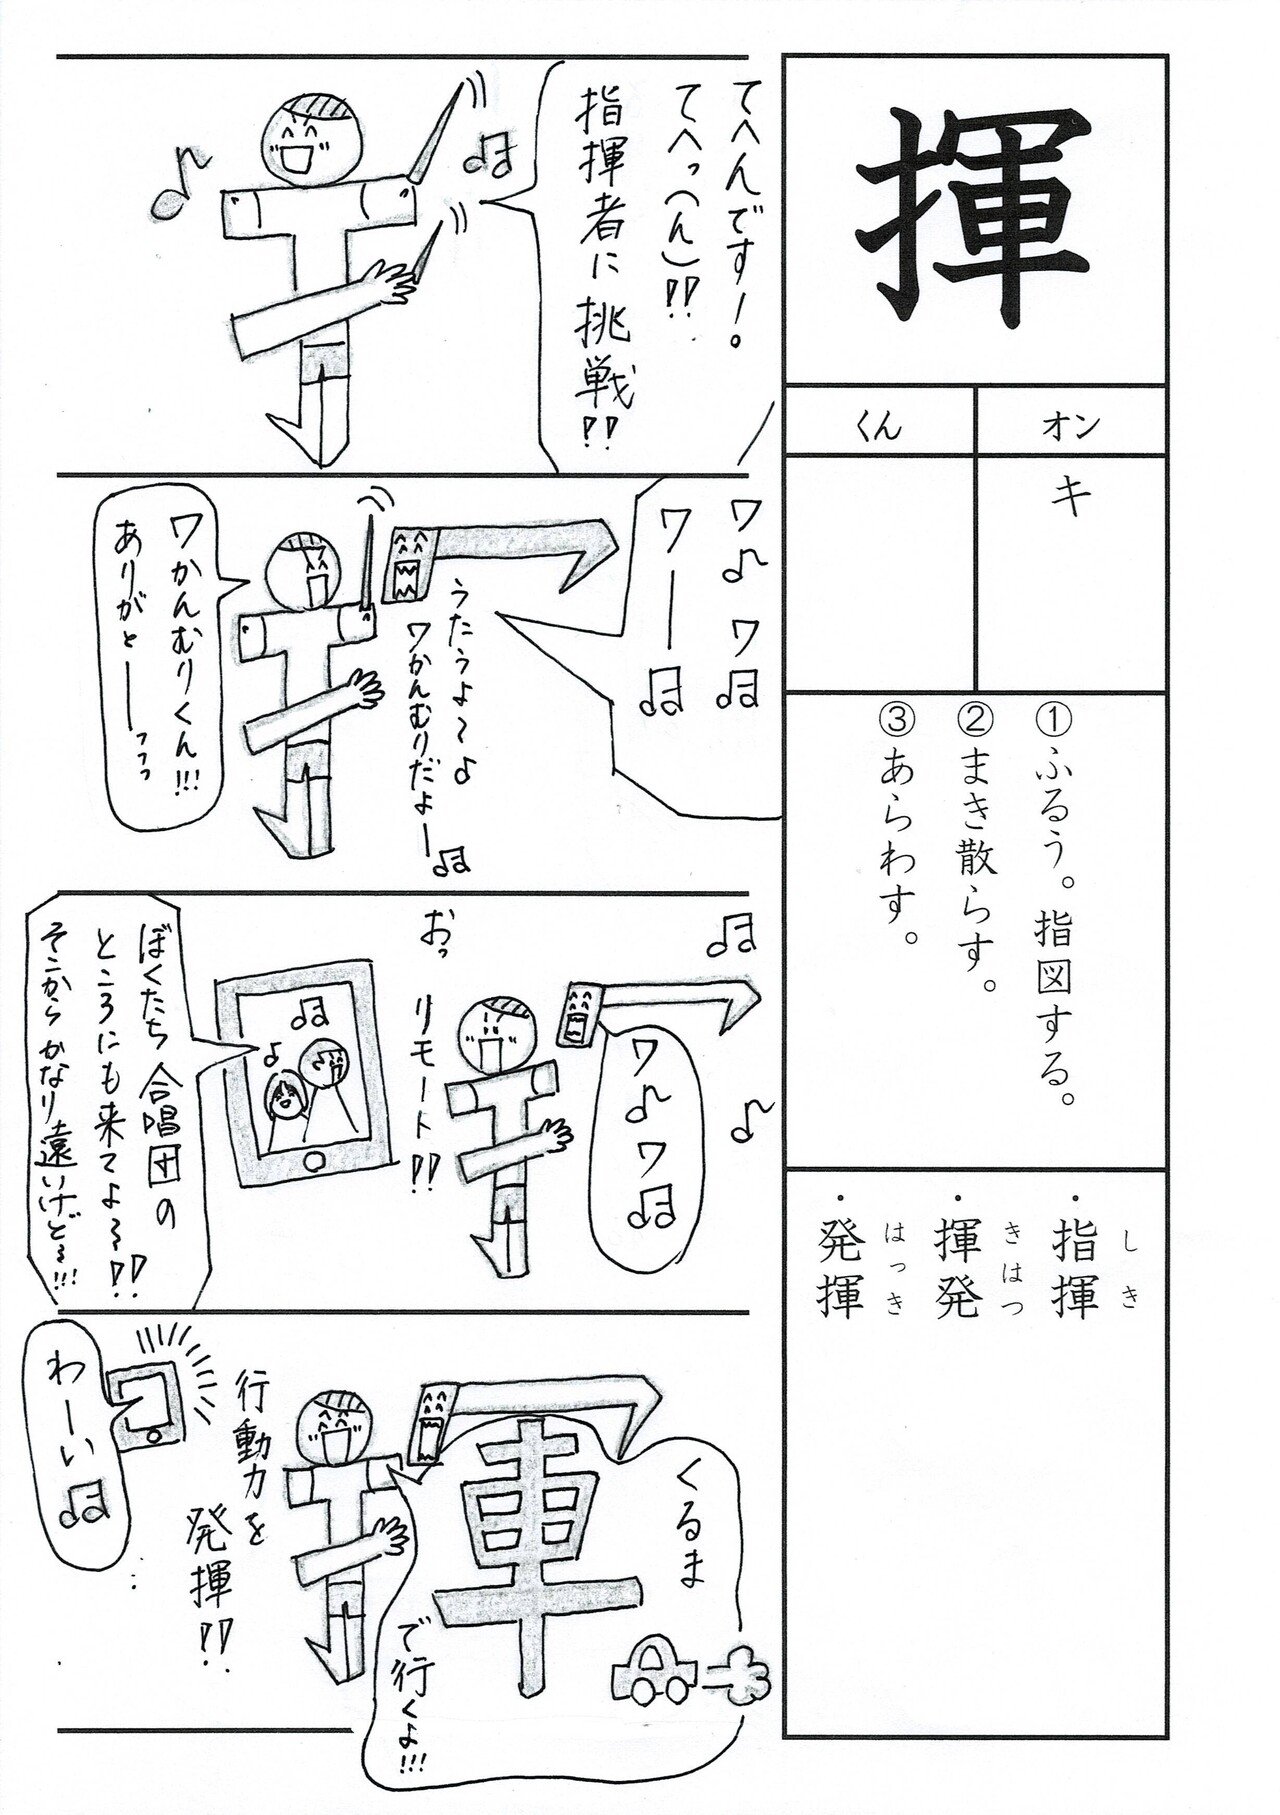 揮
オン
くん
キ
①ふるう。指図する。
②まき散らす。
③あらわす。
・指揮
しき
・揮発
きはつ
・発揮
はっき
てへんです！。
てへっ(ん)!!
指揮者に挑戦!!
ワ♪ワ♫
ワー♫
うたうよ〜♪
ワかんむりだよー♫
ワかんむりくん!!!
ありがとーーっっっ
ワ♪ワ♫
おっ
リモート!!
ぼくたち合唱団の
ところにも来てよ〜!!
そこからかなり遠いけど〜!!!
くるま
車
で行くよ!!!
行動力を
発揮!!
わーい♫